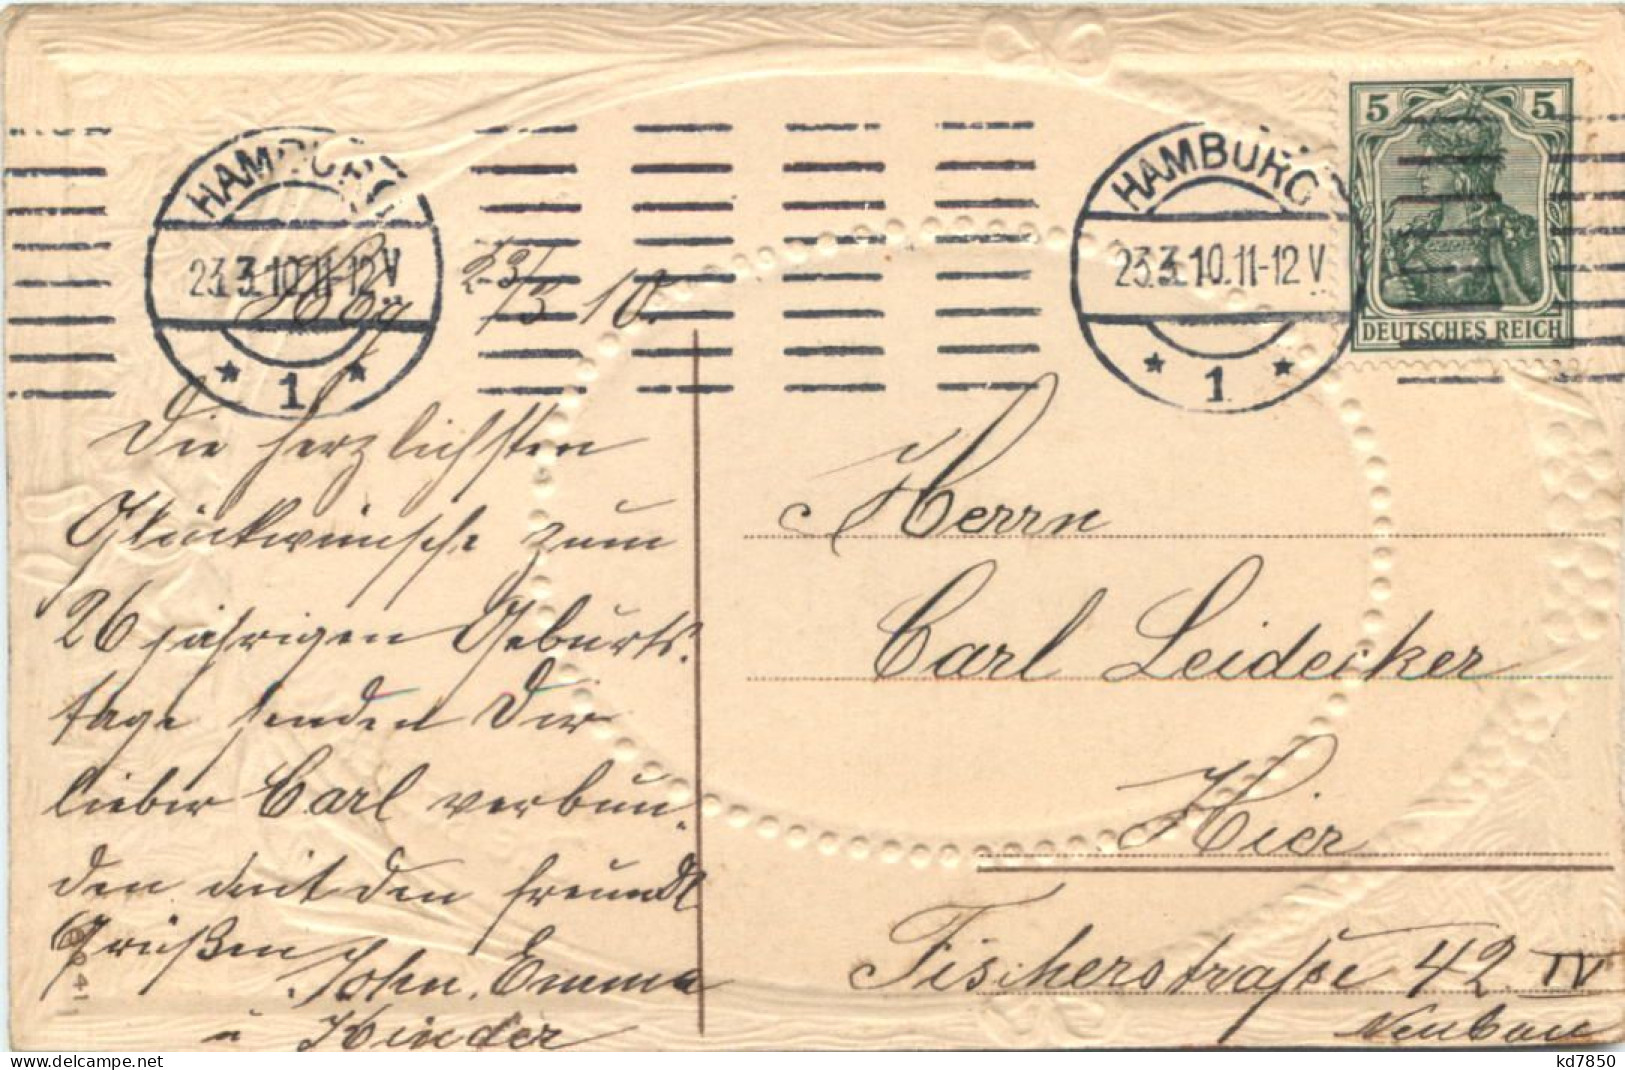 HAMBURG
23.3.10.11-12V
* 1 *
HAMBURG
23.3.10.11-12V
* 1 *
5 5
DEUTSCHES REICH
Hbg 23/3 10.
Die herzlichsten
Glückwünsche zum
26 jährigen Geburts-
tage senden Dir
lieber Carl verbun-
den mit den freundl
Grüßen John, Emma
u Kinder
Herrn
Carl Leidecker
Hier
Fischerstraße 42 IV
Neubau
kd7850